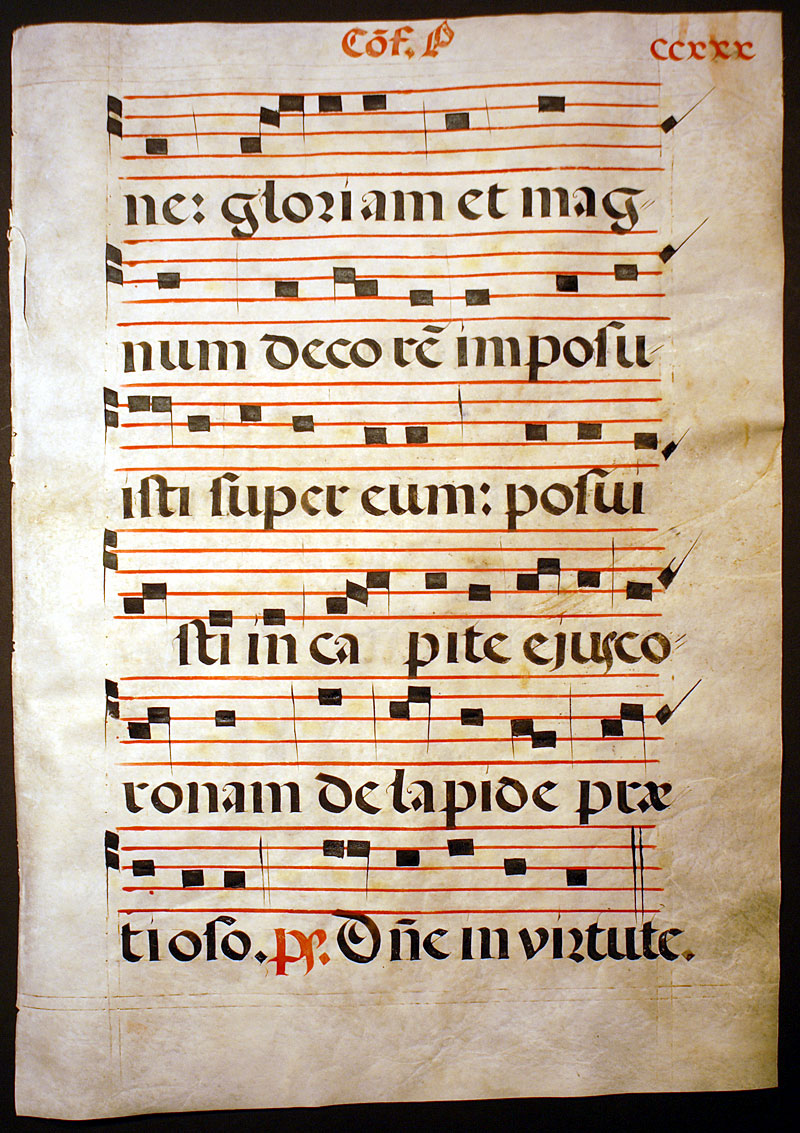 Cõf. P ccxxx
ne: gloriam et mag
num deco rẽ imposu
isti super eum: posui
sti in ca pite ejus co
ronam de lapide præ
tioso. ps. Dñe in virtute.